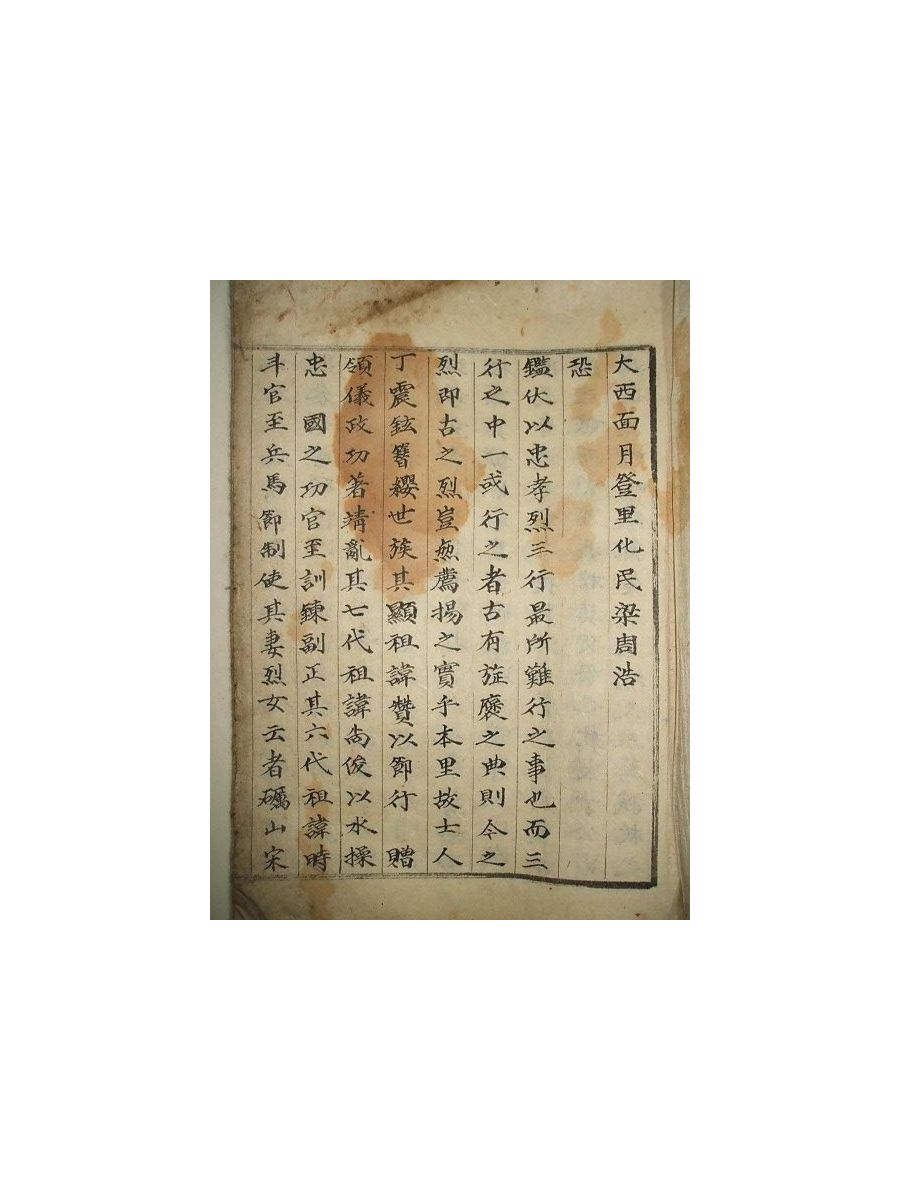 大西面月登里化民梁周浩
恐
鑑伏以忠孝烈三行最所難行之事也而三
行之中一或行之者古有旌褒之典則今之
烈即古之烈豈無薦揚之實乎本里故士人
丁震鉉簪纓世族其顯祖諱贊以節行　贈
領儀政功著靖亂其七代祖諱尙俊以水操
忠　國之功官至訓鍊副正其六代祖諱時
斗官至兵馬節制使其妻烈女云者礪山宋